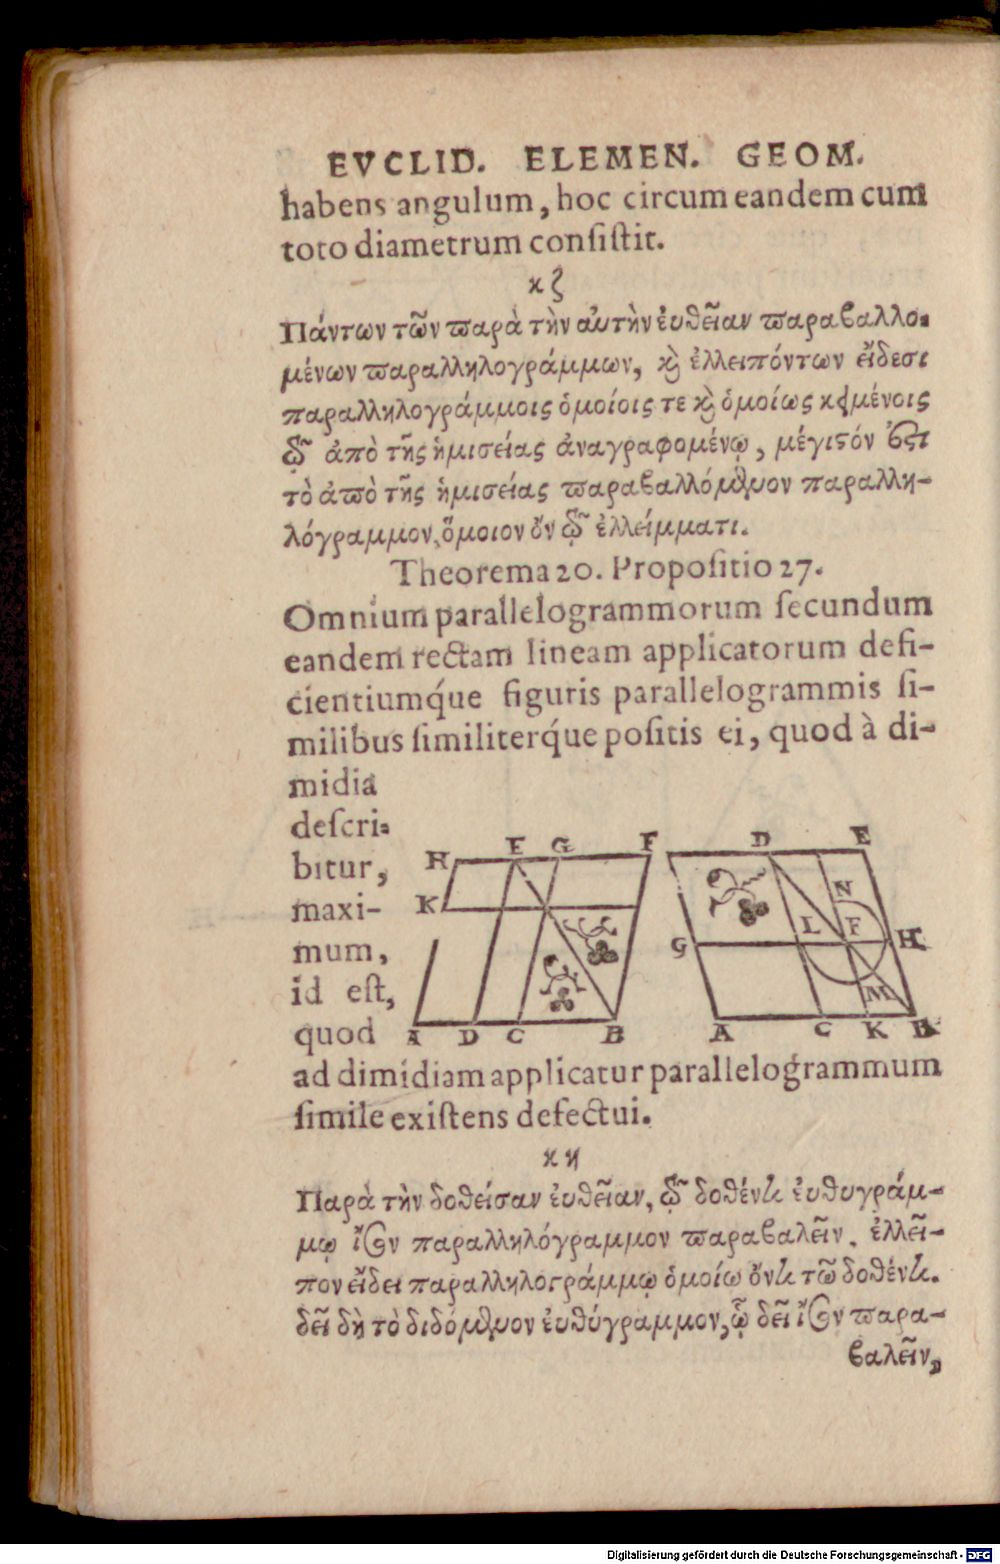 EVCLID. ELEMEN. GEOM.
habens angulum, hoc circum eandem cum
toto diametrum conſiſtit.
κζ
Πάντων τῶν ϖαρὰ τὴν αὐτὴν ἐυθεῖαν ϖαραϐαλλο-
μένων ϖαραλληλογράμμων, ϗ ἐλλειπόντων εἴδεσι
παραλληλογράμμοις ὁμοίοις τε ϗ ὁμοίως κειμένοις
τῷ ἀπὸ τῆς ἡμισείας ἀναγραφομένῳ, μέγιϛόν ἐϛι
τὸ ἀϖὸ τῆς ἡμισείας ϖαραϐαλλόμενον παραλλη-
λόγραμμον, ὅμοιον ὂν τῷ ἐλλείμματι.
Theorema 20. Propoſitio 27.
Omnium parallelogrammorum ſecundum
eandem rectam lineam applicatorum defi-
cientiumq́ue figuris parallelogrammis ſi-
milibus ſimiliterq́ue poſitis ei, quod à di-
midia
deſcri-
bitur,
maxi-
mum,
id eſt,
quod
H E G F
K
A D C B
D E
N
L F
G H
M
A C K B
ad dimidiam applicatur parallelogrammum
ſimile exiſtens defectui.
κη
Παρὰ τὴν δοθείσαν ἐυθεῖαν, τῷ δοθέντι ἐυθυγράμ-
μῳ ἴσον παραλληλόγραμμον ϖαραϐαλεῖν, ἐλλεῖ-
πον εἴδει παραλληλογράμμῳ ὁμοίω ὄντι τῶ δοθέντι.
δεῖ δὴ τὸ διδόμενον ἐυθύγραμμον, ᾧ δεῖ ἴσον ϖαρα-
ϐαλεῖν,
Digitalisierung gefördert durch die Deutsche Forschungsgemeinschaft - DFG